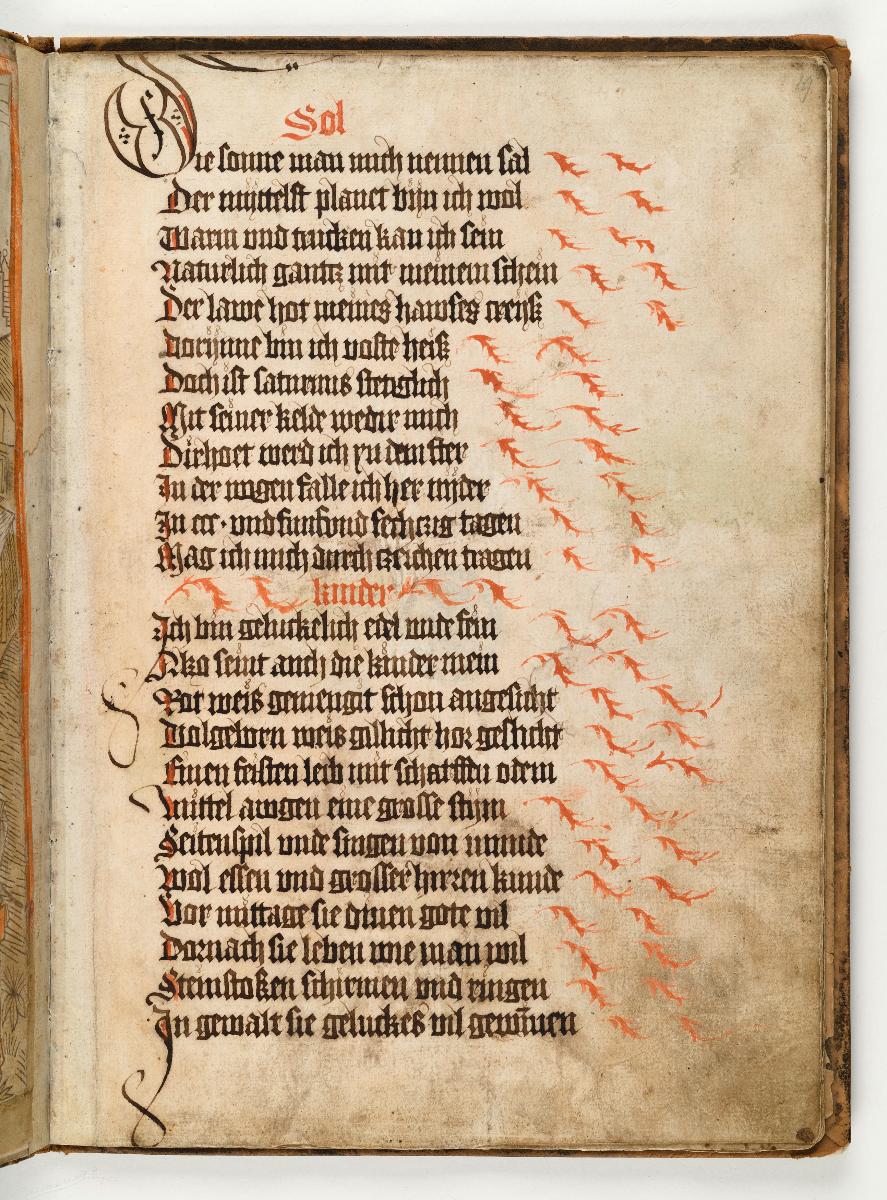 Sol
Die sonne man mich nennen sal
Der mittelst planet byn ich wol
Warm vnd trucken kan ich sein
Naturlich gantz mit meinem schein
Der lawe hot meines hawses creyß
Dorynne bin ich voste heiß
Doch ist saturnus stetiglich
Mit seiner kelde wedir mich
Dirhoet werd ich zu dem ster
In der wogen falle ich her nyder
In ccc· vnd funf vnd sechczig tagen
Mag ich mich durch czeichen tragen
kinder
Ich bin geluckelich edel vnde fein
Also seint auch die kinder mein
Rot weis gemengit schon angesicht
Wolgeworn weis gillicht hor geslicht
Einen feisten leib mit scharffen odem
Mittel awgen eine grosse styrn
Seitenspil vnde singen von munde
Wol essen vnd grosser hirren kunde
Vor mittage sie dinen gote vil
Dornach sie leben wie man wil
Steinstoßen schirmen vnd ringen
In gewalt sie geluckes vil gewīnen